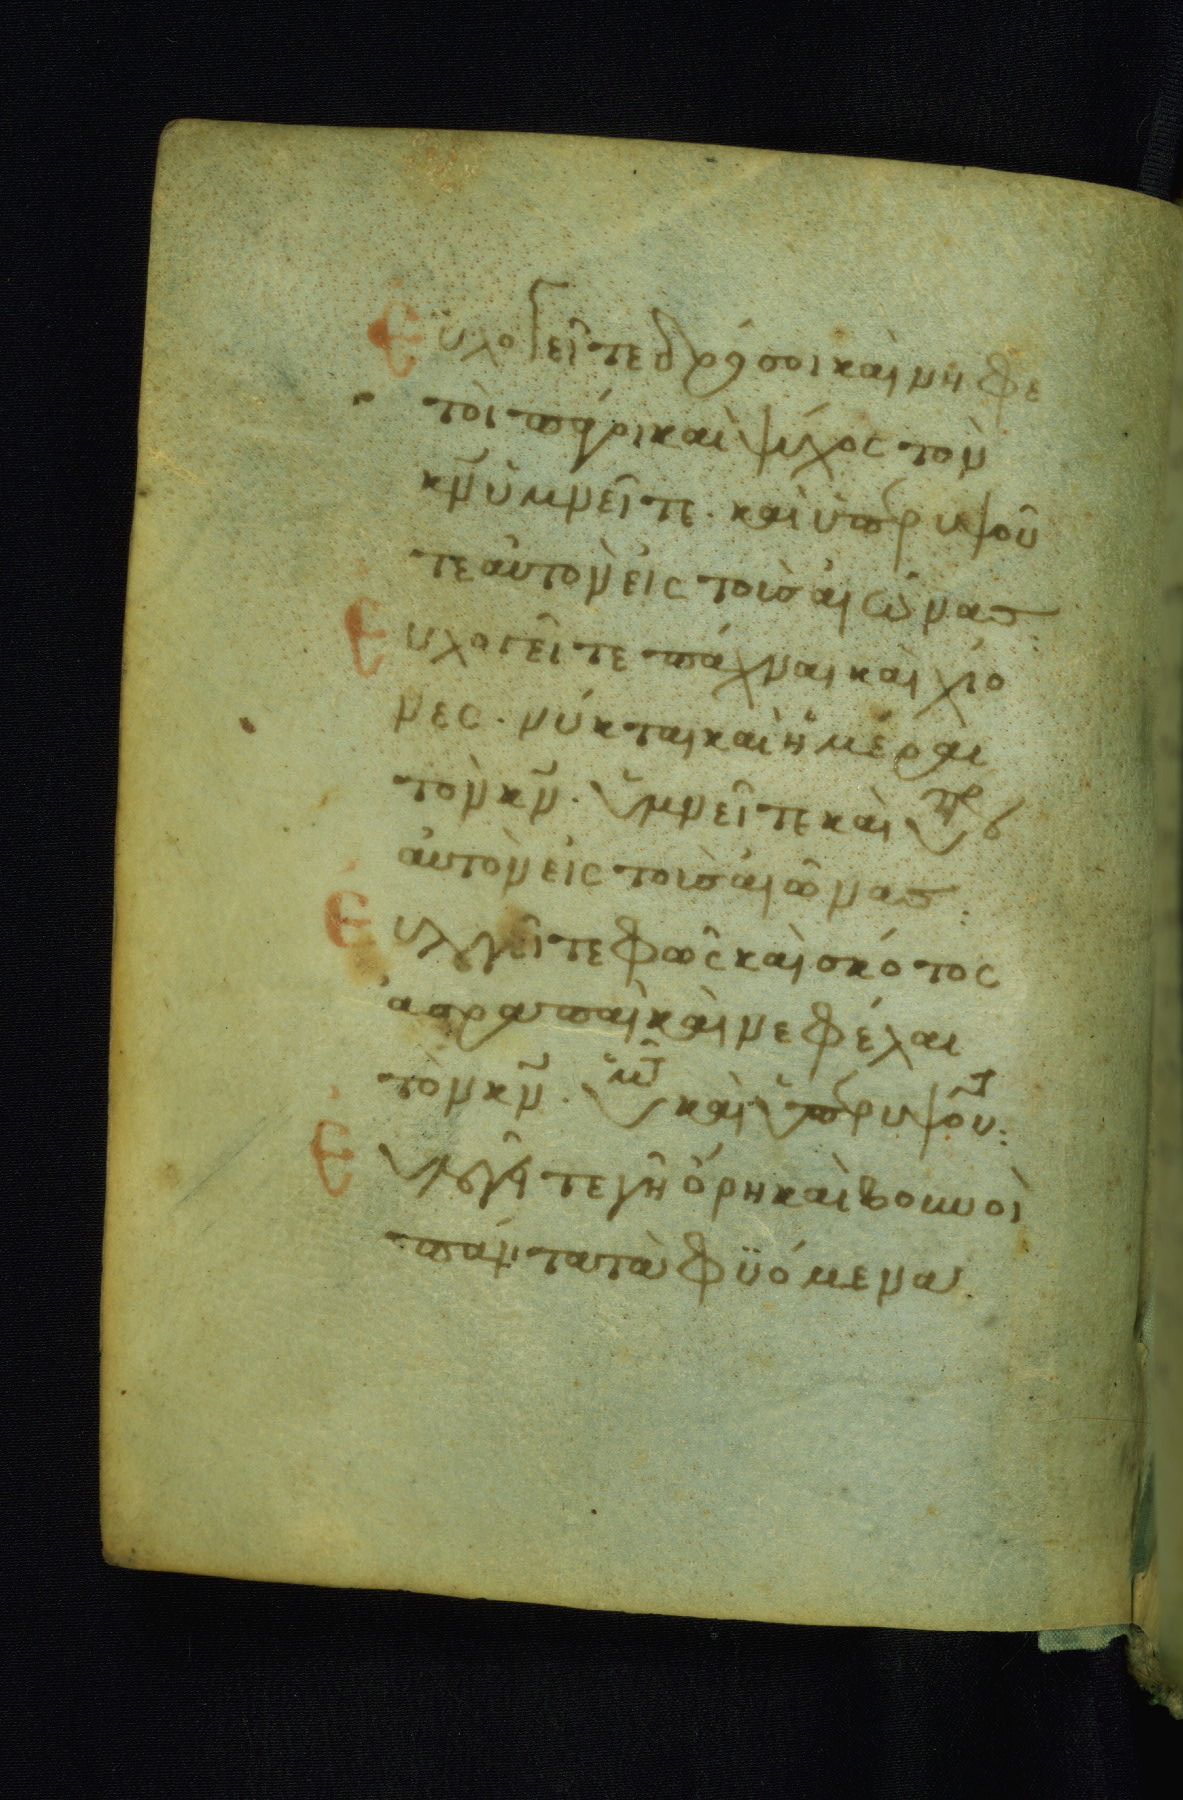 Εὐλογεῖτε δρόσοι καὶ νιφε
τοὶ πάγοι καὶ ψύχος τὸν
κν̅ ὑμνεῖτε· καὶ ὑπερυψοῦ
τε αὐτὸν εἰς τοὺς αἰῶνας:
Εὐλογεῖτε πάχναι καὶ χιό
νες· νύκται καὶ ἡμέραι
τὸν κν̅· ὑμνεῖτε καὶ
αὐτὸν εἰς τοὺς αἰῶνας:
Εὐλογεῖτε φῶς καὶ σκότος
ἀστραπαὶ καὶ νεφέλαι
τὸν κν̅· ὑμ καὶ ὑπερυψοῦ:
Εὐλογεῖτε γῆ ὄρη καὶ βουνοὶ
πάντα τὰ φυόμενα